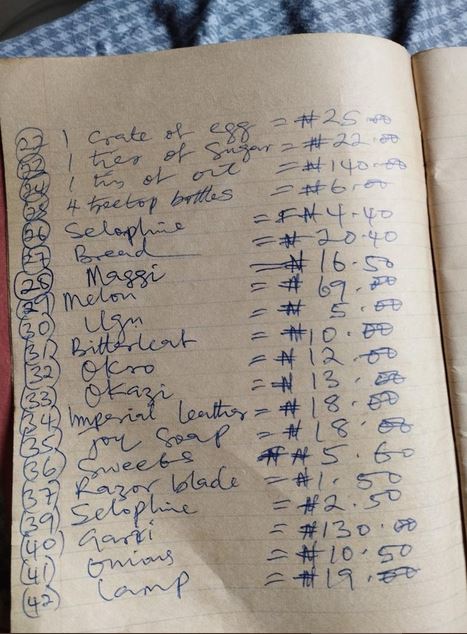 22 1 crate of egg = ₦25.00
23 1 ties of Sugar = ₦22.00
24 1 tin of oil = ₦140.00
25 4 treetop bottles = ₦6.00
26 Selophine = ₦4.40
27 Bread = ₦20.40
28 Maggi = ₦16.50
29 Melon = ₦69.00
30 Ugu = ₦5.00
31 Bitterleaf = ₦10.00
32 Okro = ₦12.00
33 Okazi = ₦13.00
34 Imperial leather = ₦18.00
35 Joy Soap = ₦18.00
36 Sweets ₦5.60
37 Razor blade = ₦1.50
39 Selophine = ₦2.50
40 Garri = ₦130.00
41 Onions = ₦10.50
42 Lamp = ₦19.00